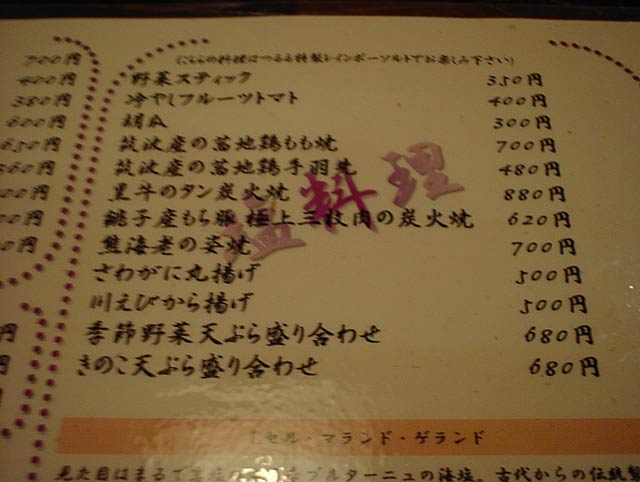 (こちらの料理はつるる特製レインボーソルトでお楽しみ下さい)
野菜スティック 350円
冷やしフルーツトマト 400円
胡瓜 300円
筑波産の茜地鶏もも焼 700円
筑波産の茜地鶏手羽先 480円
黒牛のタン炭火焼 880円
銚子産もち豚 極上三枚肉の炭火焼 620円
熊海老の姿焼 700円
さわがに丸揚げ 500円
川えびから揚げ 500円
季節野菜天ぷら盛り合わせ 680円
きのこ天ぷら盛り合わせ 680円
塩料理
700円
400円
380円
600円
650円
560円
00円
00円
0円
円
円
1.セル・マランド・ゲランド
見た目はまるで
ブルターニュの海塩。古代からの伝統製